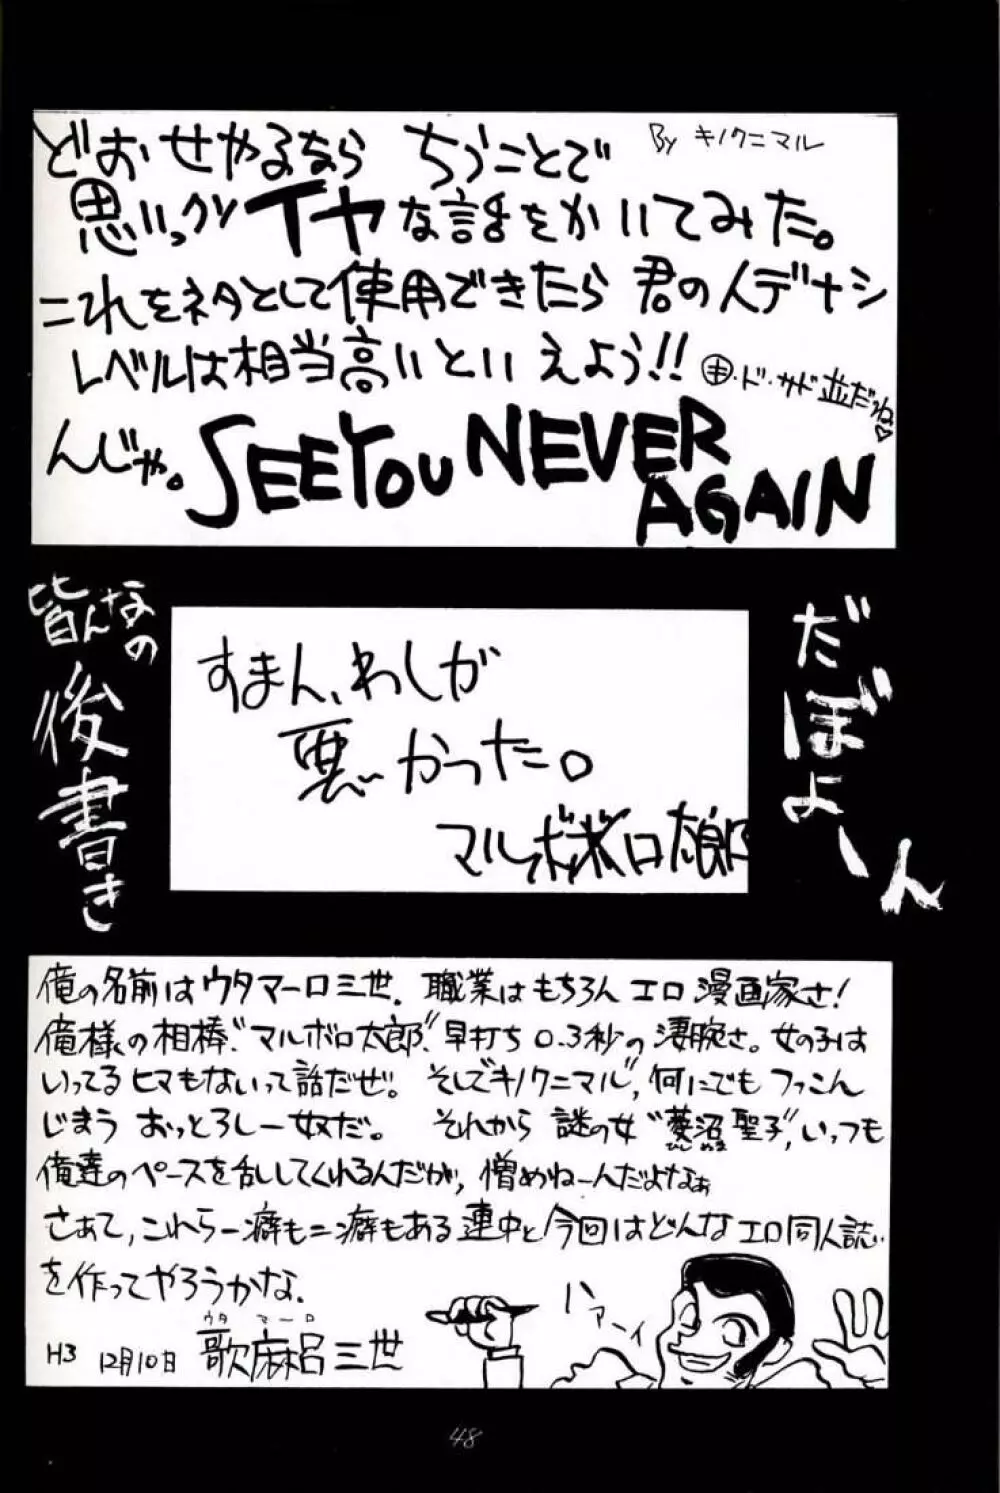 どおせやるなら ちうことで
By キノクニマル
思いっクソイヤな話をかいてみた。
これをネタとして使用できたら 君の人デナシ
レベルは相当高いといえよう!!
・ド・サド並だネ♡
んじゃ。SEE YOU NEVER
AGAIN
だぼよーん
皆んなの
後書き
すまん、わしが
悪かった。
マルボロ太郎
俺の名前はウタマーロ三世。職業はもちろんエロ漫画家さ!
俺様の相棒“マルボロ太郎”、早打ち0.3秒の凄腕さ。女の子は
いってるヒマもないって話だぜ。そしてキノクニマル”,何にでもつっこん
じまう おっとろしー奴だ。 それから謎の女“菱沼聖子”,いっつも
ひしぬま
俺達のペースを乱してくれるんだが,憎めねーんだよなぁ
さあて,これら一癖も二癖もある連中と今回はどんなエロ同人誌
を作ってやろうかな.
ハァーイ
ウタマーロ
H3 12月10日 歌麻呂三世
48